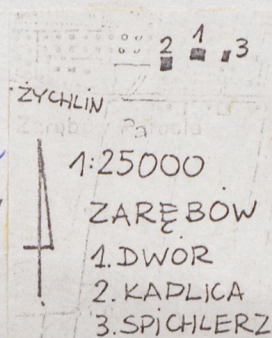 2 1 3
ŻYCHLIN
1:25000
ZARĘBÓW
1. DWÓR
2. KAPLICA
3. SPICHLERZ